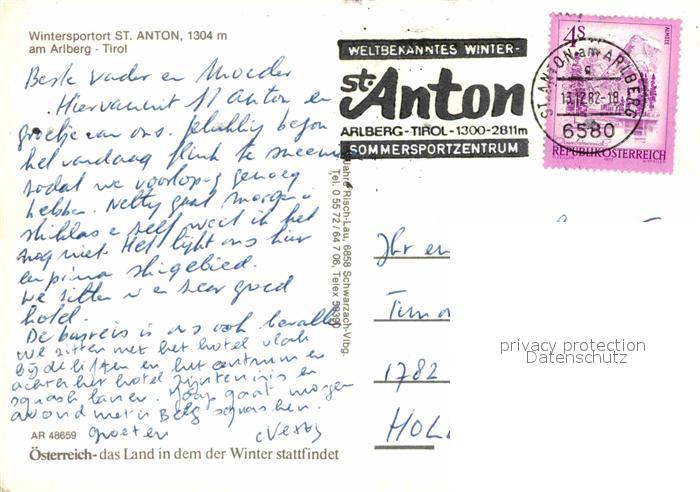 Wintersportort ST. ANTON, 1304 m
am Arlberg - Tirol
Beste Vader en Moeder
Hiervanuit St Anton en
groetje van ons. Gelukkig begon
het vandaag flink te sneeuwen
zodat we voorlopig genoeg
hebben. Netty gaat morgen
skiklas zelf weet ik het
nog niet. Het lijkt ons hier
een prima skigebied.
We zitten in een zeer goed
hotel.
De busreis is ons ook bevallen
we zitten met het hotel vlak
bij de liften en het centrum en
achter het hotel zijn tennis en
squash banen. Jaap gaat morgen
avond met squashen.
groeten
AR 48659
Österreich - das Land in dem der Winter stattfindet
Risch-Lau, 6858 Schwarzach-Vlbg.
Tel. 0 55 72 / 64 7 06, Telex 59390
WELTBEKANNTES WINTER-
St. Anton
ARLBERG-TIROL-1300-2811m
SOMMERSPORTZENTRUM
ST. ANTON am ARLBERG
c
13.12.82-18
6580
4S
ALMSEE
REPUBLIK ÖSTERREICH
1782
HOL
privacy protection
Datenschutz